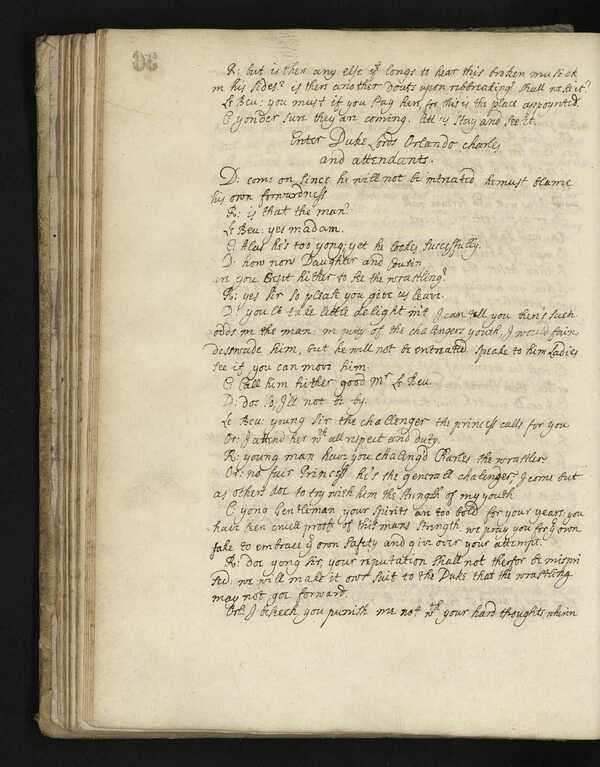 R: but is ther any else yt longs to hear this broken musick
in his sides? is ther another douts upon ribbreaking? shall we see it?
Le Beu: you must if you stay her, for this is the place appoynted.
C: yonder sure they are coming. let us stay and see it.
Enter Duke Lords Orlando Charles
and attendants.
D: come on since he will not be intreated he must blame
his own forwardness
R: is that the man?
Le Beu: yes madam.
C: Alas he's too yong; yet he lookes sucessfully.
D: how now Daughter and Cousin
are you crept hither to see the wrastling?
R: yes sir so please you give us leave.
D: you'l take little delight in't I can tell you ther's such
odds in the man: in pitty of the challengers youth, I would fain
desswade him, but he will not be entreated. speake to him Ladies
see if you can move him.
C: Call him hither good Mr Le Beu.
D: doe so, I'll not be by.
Le Beu: young sir the challenger the princess calls for you
Or: I attend her wth all respect and duty.
R: young man have you chalengd Charles the wrastler
Or: no fair Princess he's the generall chalenger, I come but
as others doe to try with him the strength of my youth.
C: yong Gentleman your spirits are too bold for your years, you
have seen cruell proofe of this mans strength. we pray you for yr own
sake to embrace yr own safety and give over your attempt.
R: doe yong sir, your reputation shall not therfor be mispri
sed: we will make it our suit to the Duke that the wrastling
may not goe forward.
Or: I beseech you punish me not wth your hard thoughts, wherin